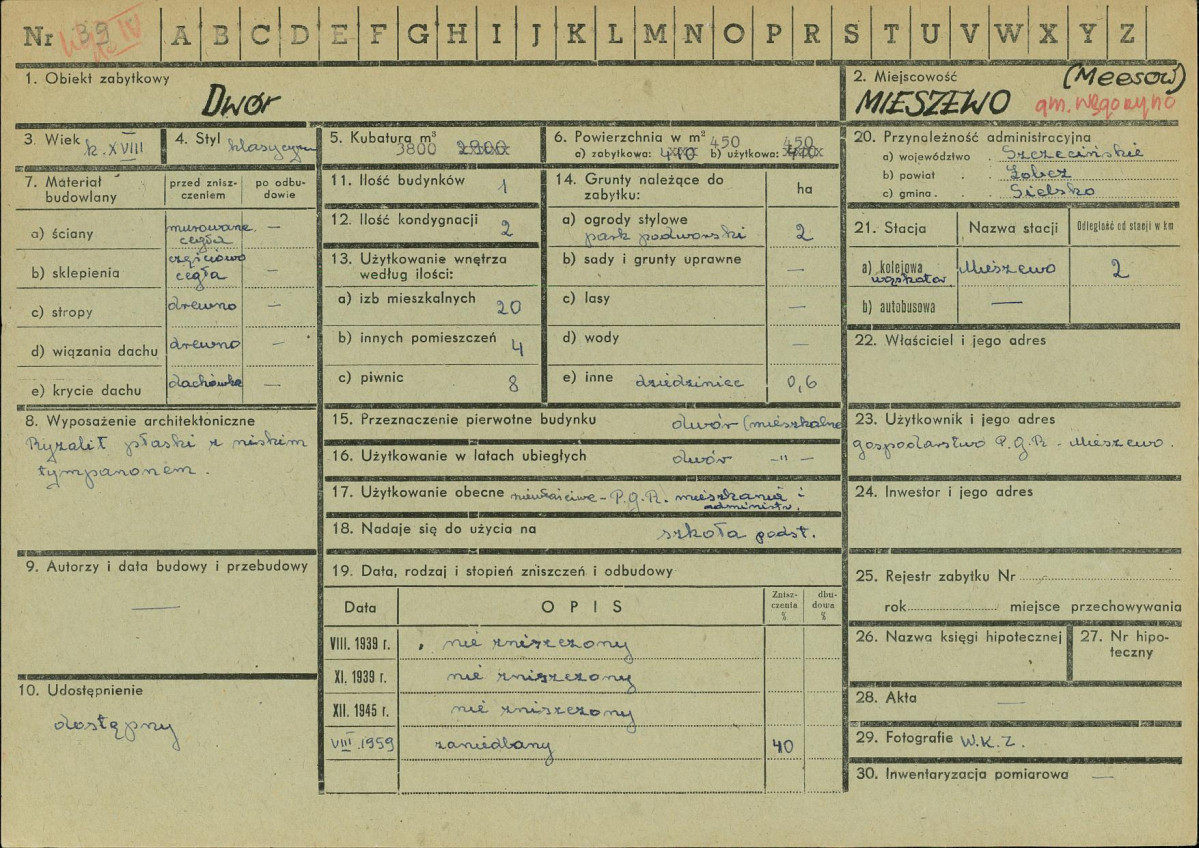 Nr 39 A B C D E F G H I J K L M N O P R S T U V W X Y Z
1. Obiekt zabytkowy
Dwór
2. Miejscowość (Meesow)
MIESZEWO gm. Węgorzyno
3. Wiek k. XVIII
4. Styl klasycyzm
5. Kubatura m³
3800 2900
6. Powierzchnia w m² 450 450
a) zabytkowa: 440 b) użytkowa: 440
7. Materiał budowlany
przed zniszczeniem
po odbudowie
a) ściany murowane cegła —
b) sklepienia częściowo cegła —
c) stropy drewno —
d) wiązania dachu drewno —
e) krycie dachu dachówka —
8. Wyposażenie architektoniczne
Ryzalit płaski z niskim
tympanonem.
9. Autorzy i data budowy i przebudowy
—
10. Udostępnienie
dostępny
11. Ilość budynków 1
12. Ilość kondygnacji 2
13. Użytkowanie wnętrza
według ilości:
a) izb mieszkalnych 20
b) innych pomieszczeń 4
c) piwnic 8
14. Grunty należące do
zabytku: ha
a) ogrody stylowe
park podworski 2
b) sady i grunty uprawne —
c) lasy —
d) wody —
e) inne dziedziniec 0,6
15. Przeznaczenie pierwotne budynku dwór (mieszkalne
16. Użytkowanie w latach ubiegłych dwór —"—
17. Użytkowanie obecne niewłaściwe - P.G.R. mieszkania i
administr.
18. Nadaje się do użycia na szkoła podst.
19. Data, rodzaj i stopień zniszczeń i odbudowy
Data
OPIS
Znisz-
czenia
%
dbu-
dowa
%
VIII. 1939 r. nie zniszczony
XI. 1939 r. nie zniszczony
XII. 1945 r. nie zniszczony
VIII. 1959 zaniedbany 40
20. Przynależność administracyjna
a) województwo . Szczecińskie
b) powiat . Łobez
c) gmina . Sielsko
21. Stacja
Nazwa stacji
Odległość od stacji w km
a) kolejowa Mieszewo 2
wąskotor.
b) autobusowa —
22. Właściciel i jego adres
23. Użytkownik i jego adres
gospodarstwo P.G.R. - Mieszewo.
24. Inwestor i jego adres
25. Rejestr zabytku Nr
rok miejsce przechowywania
26. Nazwa księgi hipotecznej
27. Nr hipo-
teczny
28. Akta —
29. Fotografie W.K.Z.
30. Inwentaryzacja pomiarowa —